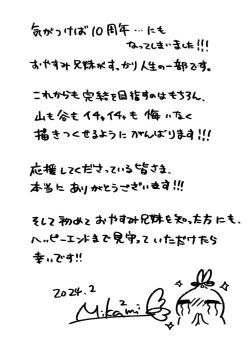 気がつけば10周年…にも
なってしまいました!!!
おやすみ兄妹がすっかり人生の一部です。
これからも完結を目指すのはもちろん、
山も谷もイチャイチャも悔いなく
描きつくせるようにがんばります!!!
応援してくださっている皆さま、
本当にありがとうございます!!!
そして初めておやすみ兄妹を知った方にも、
ハッピーエンドまで見守っていただけたら
幸いです!!
2024.2
Mikami